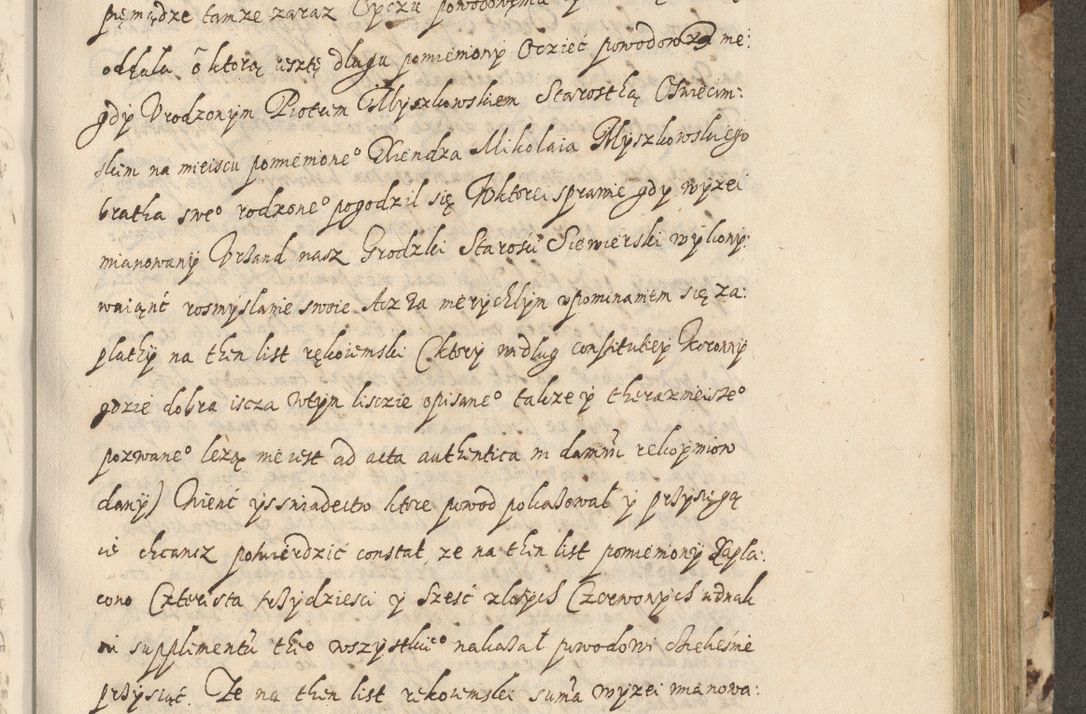 pięniądze tamze zaraz Oyczu powodowemu
oddala o ktorą resztę długu pomieniony Ociec powodow me:
gdy Urodzonym Piotrem Myszkowskiem Starosthą Oswiecim:
skim na mieiscu pomienioneo Xiendza Mikolaia Myszkowskiego
bratha sweo rodzoneo pogodzil się Wktorei sprawie gdy wyzei
mianowany Vrsand nasz Grodzki Starosti Siewierski wykony:
waiąnć rosmyslanie swoie Acz za nierychłym vpominaniem się za:
plathy na then list rękoiemski (ktory według constitutiey Koronny
gdzie dobra iscza Wtym lisczie opisaneo takze y theraznieiszeo
pozwaneo leżą nie iest ad acta authentica in damnũ rekoymiow
dany) Wienć ysswiadectw ktore powod pokazował y przysięgą
ie chcansz potwierdzić constat ze na then list pomieniony Zapla:
cono Czterista trzydziesci y szesć zlotych Czerwonych iednak
in supplimentũ theo wszystkieo nakazał powodowi cieliesnie
przysiąc Ze na then list rekoiemski sum̃a wyzei mianowa: